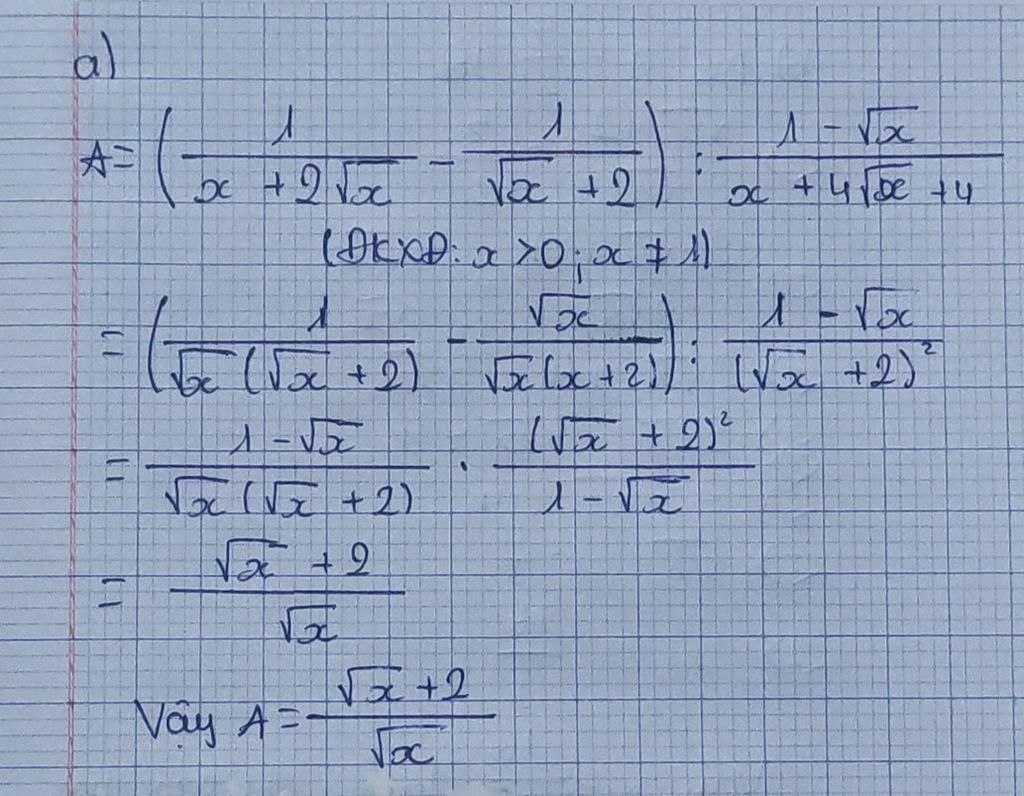 a)
A = ( 1/(x + 2√x) - 1/(√x + 2) ) : (1 - √x)/(x + 4√x + 4)
(ĐKXĐ: x > 0; x ≠ 1)
= ( 1/(√x (√x + 2)) - √x/(√x (x + 2)) ) : (1 - √x)/(√x + 2)²
= (1 - √x)/(√x (√x + 2)) . (√x + 2)²/(1 - √x)
= (√x + 2)/√x
Vậy A = (√x + 2)/√x